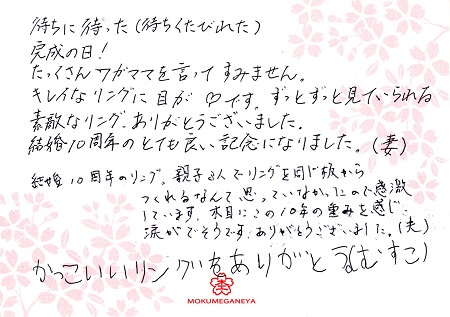 待ちに待った(待ちくたびれた)
完成の日!
たっくさんワガママを言ってすみません。
キレイなリングに目が♡です。ずっとずっと見ていられる
素敵なリング、ありがとうございました。
結婚10周年のとても良い記念になりました。(妻)
結婚10周年のリング。親子3人でリングを同じ板から
つくれるなんて思っていなかったので感激
しています。木目にこの10年の重みを感じ、
涙がでそうです。ありがとうございました。(夫)
かっこいいリングをありがとう(むすこ)
MOKUMEGANEYA